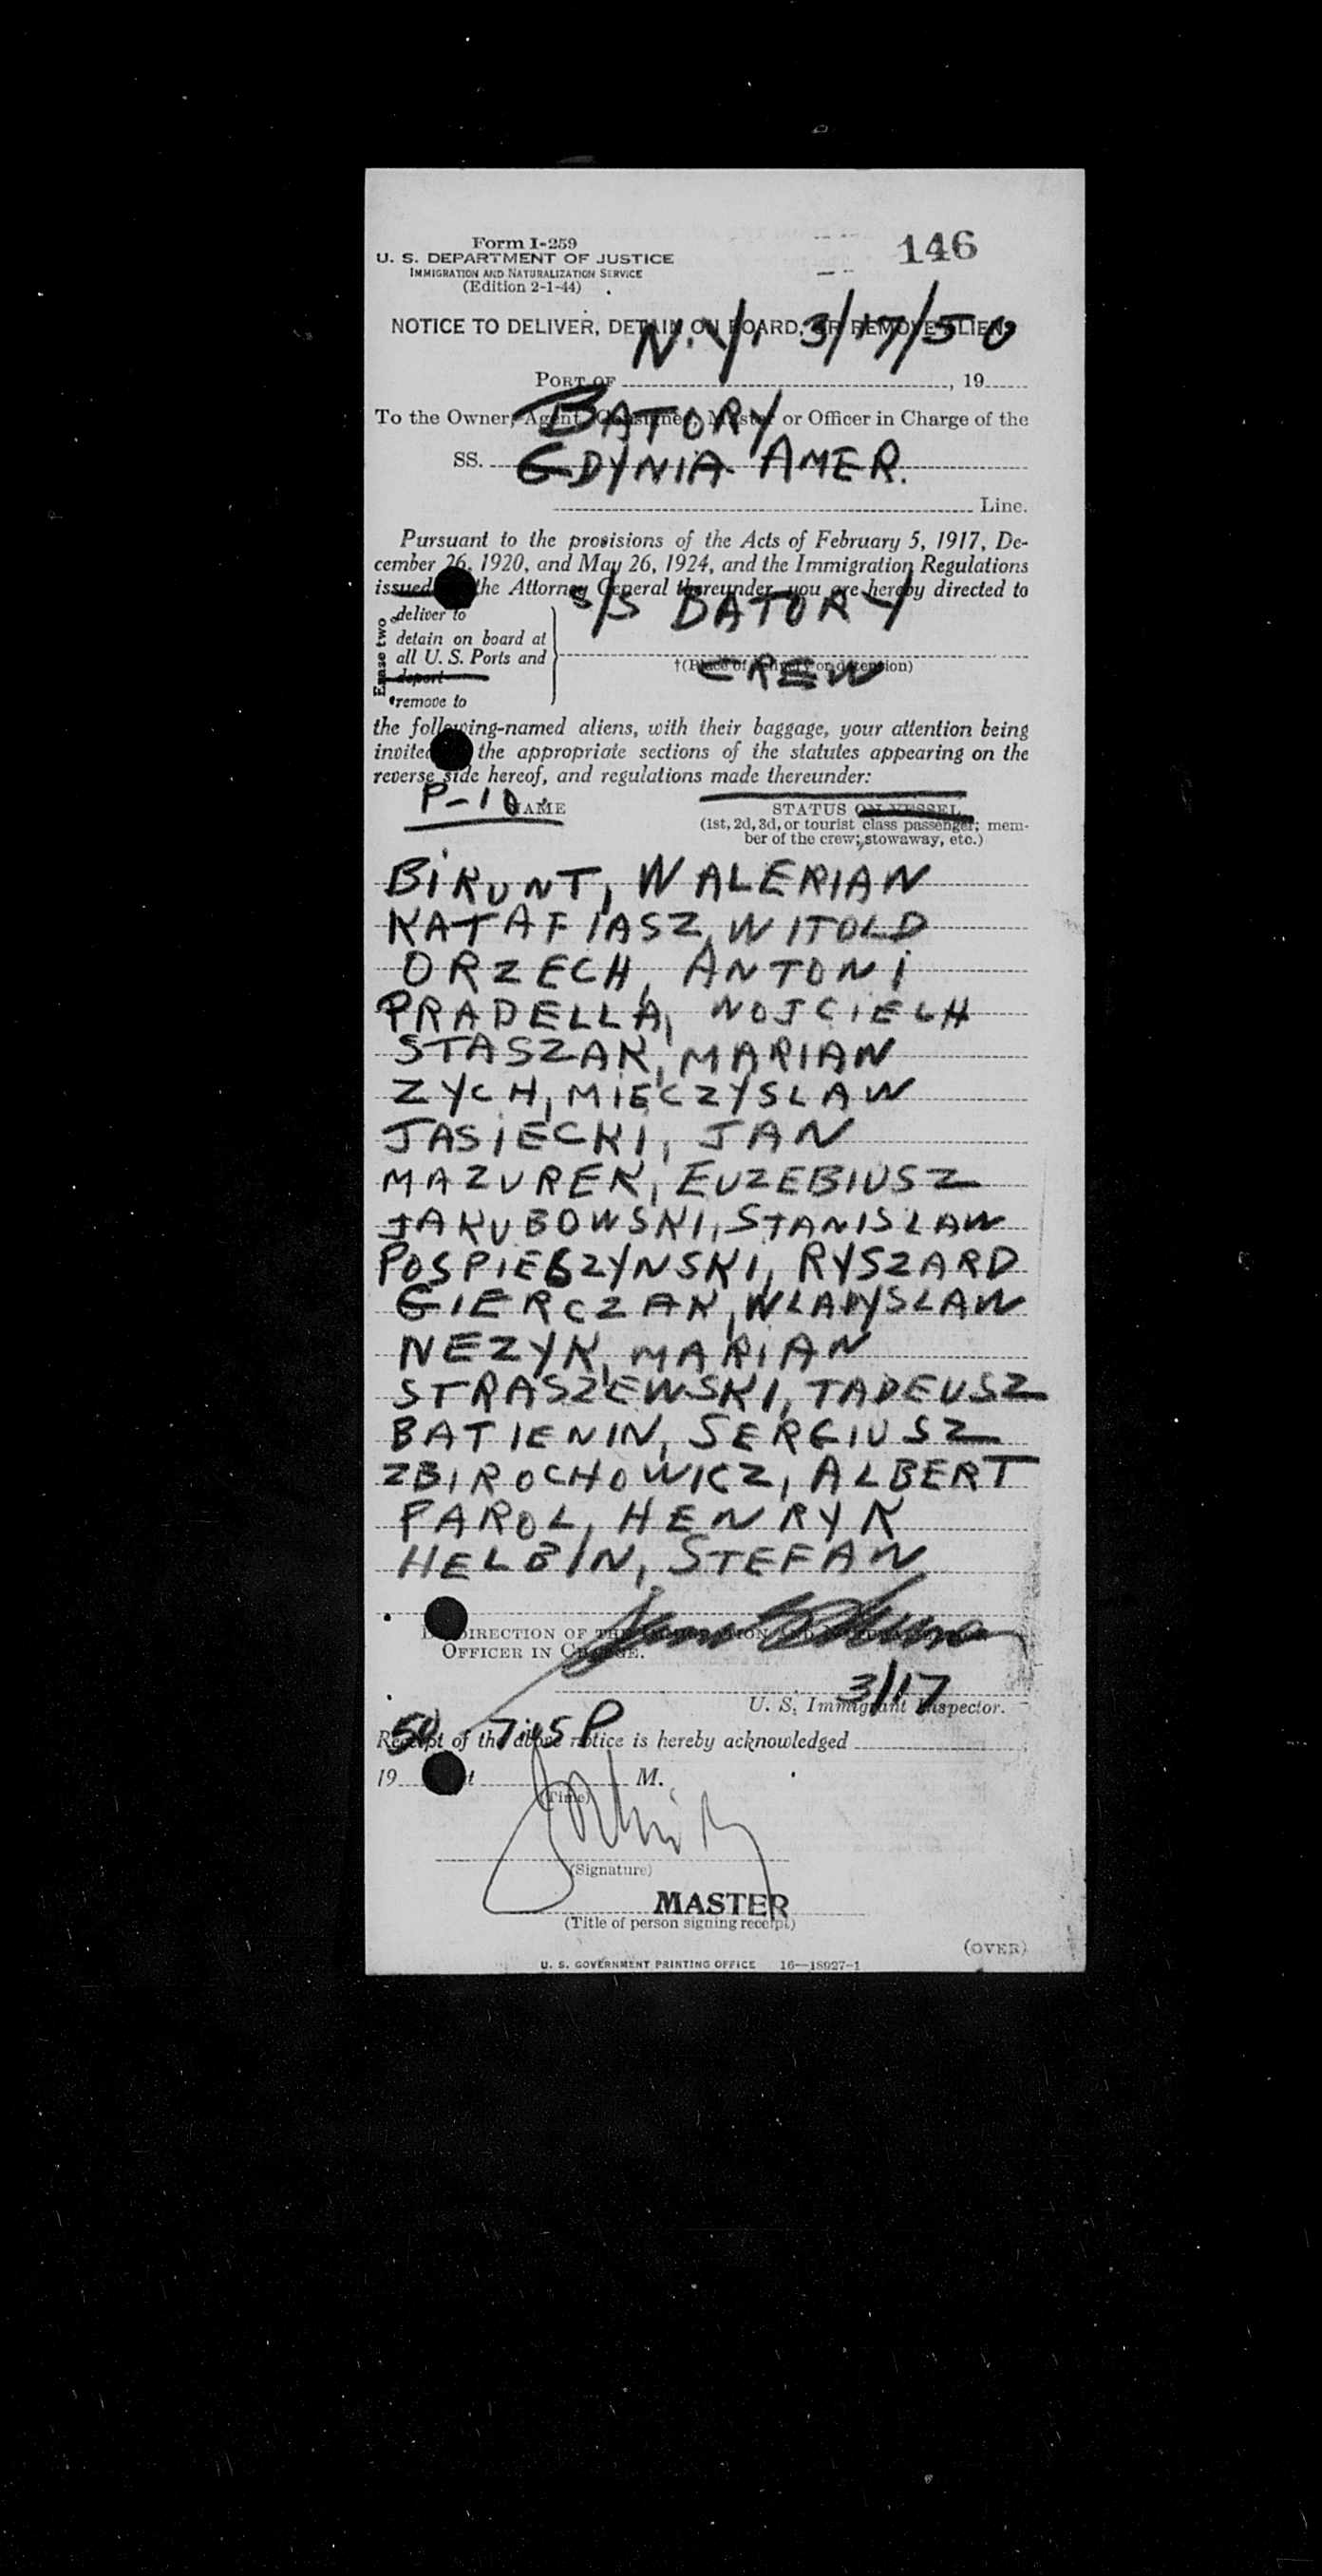 Form I-259
U. S. DEPARTMENT OF JUSTICE
IMMIGRATION AND NATURALIZATION SERVICE
(Edition 2-1-44)
146
NOTICE TO DELIVER, DETAIN ON BOARD, OR REMOVE ALIENS
N.Y. 3/17/50
PORT OF , 19
To the Owner, Agent, Consignee, Master or Officer in Charge of the
BATORY
SS. GDYNIA AMER.
Line.
Pursuant to the provisions of the Acts of February 5, 1917, De-
cember 26, 1920, and May 26, 1924, and the Immigration Regulations
issued the Attorney General thereunder, you are hereby directed to
S/S BATORY
Erase two
deliver to
detain on board at
all U. S. Ports and
deport
*remove to
†(Place of delivery or detention)
CREW
the following-named aliens, with their baggage, your attention being
invited the appropriate sections of the statutes appearing on the
reverse side hereof, and regulations made thereunder:
P-10
NAME
STATUS ON VESSEL
(1st, 2d, 3d, or tourist class passenger; mem-
ber of the crew; stowaway, etc.)
BIKUNT, WALERIAN
KATAFIASZ, WITOLD
ORZECH, ANTONI
PRADELLA, WOJCIECH
STASZAK, MARIAN
ZYCH, MIECZYSLAW
JASIECKI, JAN
MAZUREK, EUZEBIUSZ
JAKUBOWSKI, STANISLAW
POSPIESZYNSKI, RYSZARD
GIERCZAK, WLADYSLAW
NEZYK, MARIAN
STRASZEWSKI, TADEUSZ
BATIENIN, SERGIUSZ
ZBIROCHOWICZ, ALBERT
FAROL, HENRYK
HELBIN, STEFAN
DIRECTION OF THE IMMIGRATION AND
OFFICER IN CHARGE.
3/17
U. S. Immigrant Inspector.
50 7:05 P
Receipt of the above notice is hereby acknowledged
19 at M.
(Time)
(Signature)
MASTER
(Title of person signing receipt)
(OVER)
U. S. GOVERNMENT PRINTING OFFICE 16—18927-1